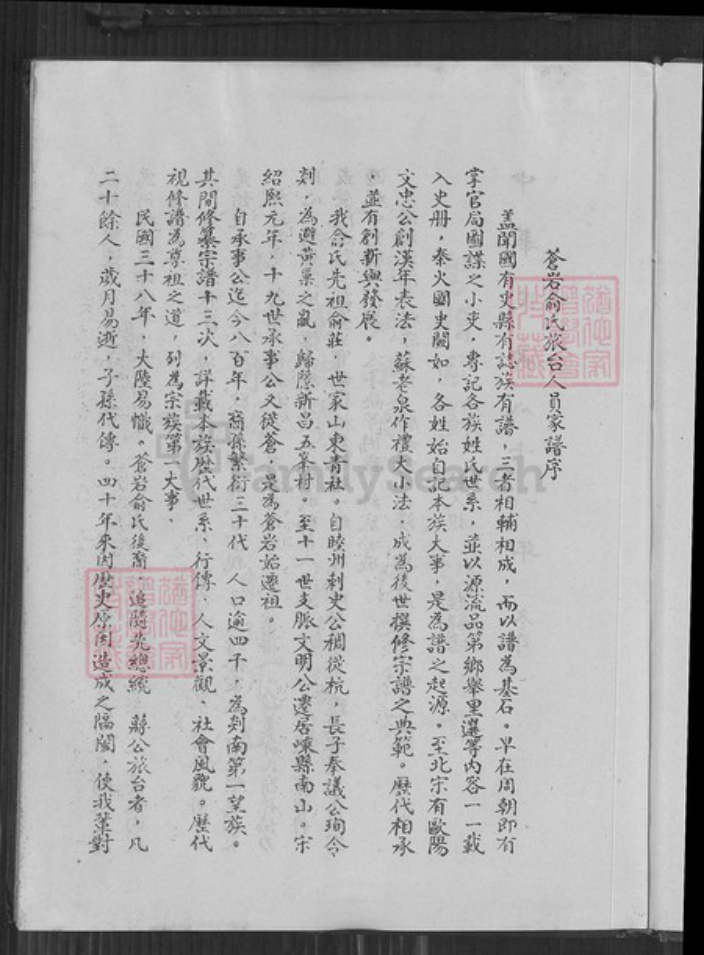 蒼岩俞氏旅台人員家譜序
蓋聞國有史縣有誌族有譜，三者相輔相成，而以譜為基石。早在周朝即有
掌官局國諜之小吏，專記各族姓氏世系，並以源流品第鄉舉里選等內容一一載
入史册，秦火國史闕如，各姓始自記本族大事，是為譜之起源。至北宋有歐陽
文忠公創漢年表法，蘇老泉作禮大小法，成為後世撰修宗譜之典範。歷代相承
，並有創新與發展。
我俞氏先祖俞莊，世家山東青社。自睦州刺史公稠從杭，長子奉議公珣令
剡，為避黃巢之亂，歸隱新昌五峯村。至十一世支脈文明公遷居嵊縣南山。宋
紹熙元年，十九世承事公又徙蒼，是為蒼岩始遷祖。
自承事公迄今八百年，裔孫繁衍三十代，人口逾四千，為剡南第一望族。
其間修纂宗譜十三次，詳載本族歷代世系、行傳、人文景觀、社會風貌。歷代
視修譜為尊祖之道，列為宗族第一大事、
民國三十八年，大陸易幟。蒼岩俞氏後裔追隨先總統　蔣公旅台者，凡
二十餘人，歲月易逝，子孫代傳。四十年來因歷史原因造成之隔閡，使我輩對
FamilySearch